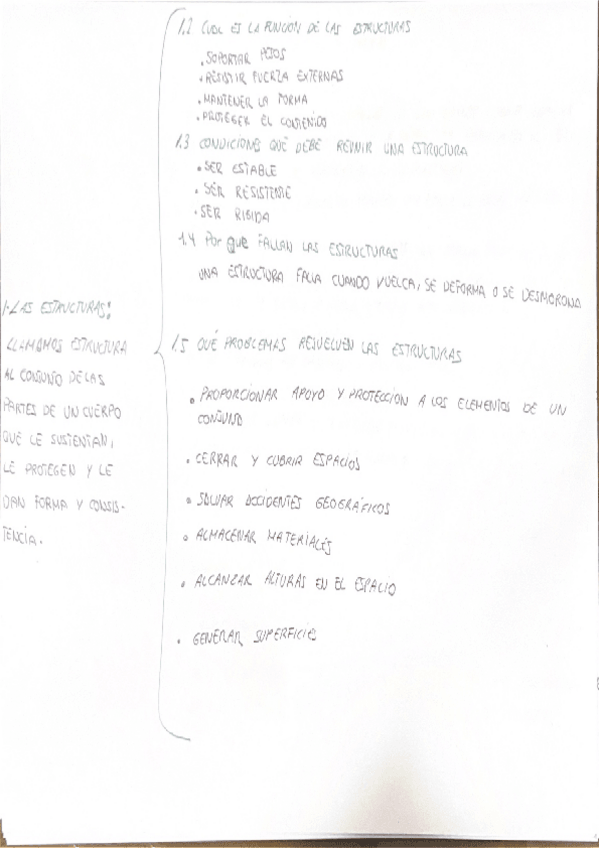 1.2 CUAL ES LA FUNCION DE LAS ESTRUCTURAS
. SOPORTAR PESOS
. RESISTIR FUERZA EXTERNAS
. MANTENER LA FORMA
. PROTEGER EL CONTENIDO
1.3 CONDICIONES QUÉ DEBE REUNIR UNA ESTRUCTURA
. SER ESTABLE
. SER RESISTENTE
. SER RIGIDA
1.4 Por que FALLAN LAS ESTRUCTURAS
UNA ESTRUCTURA FALLA CUANDO VUELCA, SE DEFORMA O SE DESMORONA
1-LAS ESTRUCTURAS:
LLAMAMOS ESTRUCTURA
AL CONJUNTO DE LAS
PARTES DE UN CUERPO
QUE LE SUSTENTAN,
LE PROTEGEN Y LE
DAN FORMA Y CONSIS-
TENCIA.
1.5 QUÉ PROBLEMAS RESUELVEN LAS ESTRUCTURAS
. PROPORCIONAR APOYO Y PROTECCION A LOS ELEMENTOS DE UN
CONJUNTO
. CERRAR Y CUBRIR ESPACIOS
. SALVAR ACCIDENTES GEOGRÁFICOS
. ALMACENAR MATERIALES
. ALCANZAR ALTURAS EN EL ESPACIO
. GENERAR SUPERFICIES